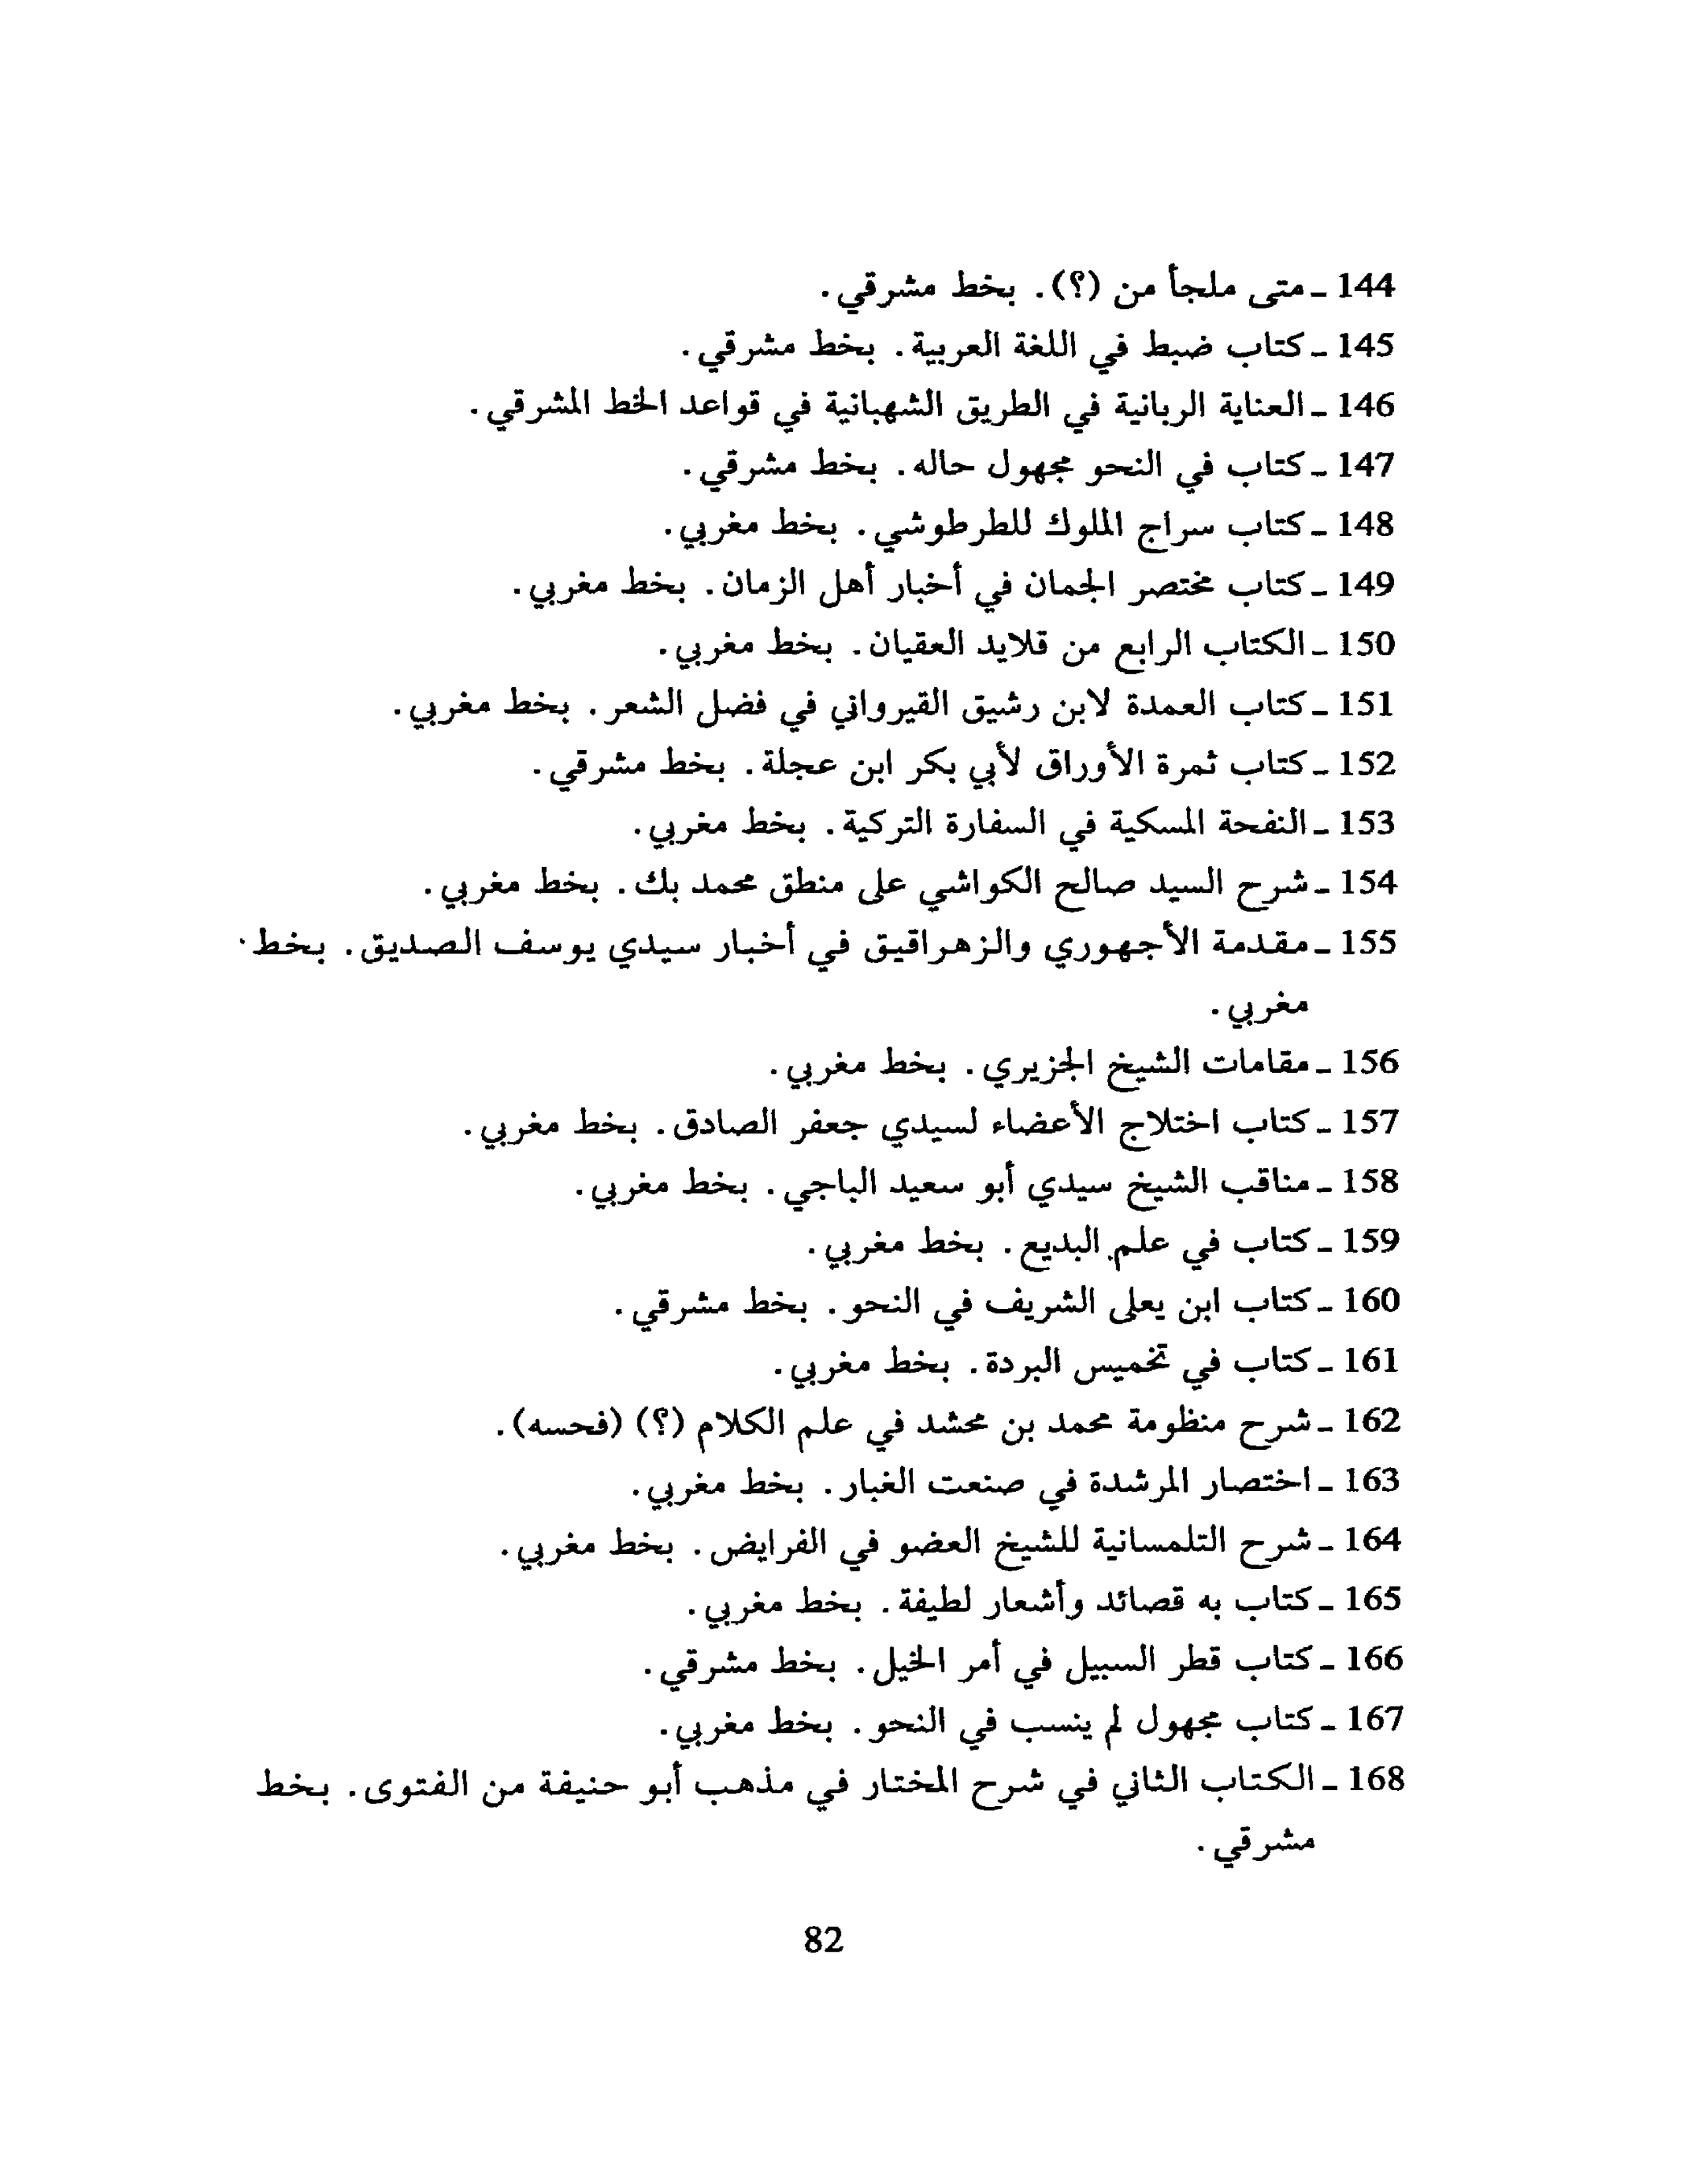 144 ـ متى ملجأ من (؟). بخط مشرقي.
145 ـ كتاب ضبط في اللغة العربية. بخط مشرقي.
146 ـ العناية الربانية في الطريق الشهبانية في قواعد الخط المشرقي.
147 ـ كتاب في النحو مجهول حاله. بخط مشرقي.
148 ـ كتاب سراج الملوك للطرطوشي. بخط مغربي.
149 ـ كتاب مختصر الجمان في أخبار أهل الزمان. بخط مغربي.
150 ـ الكتاب الرابع من قلايد العقيان. بخط مغربي.
151 ـ كتاب العمدة لابن رشيق القيرواني في فضل الشعر. بخط مغربي.
152 ـ كتاب ثمرة الأوراق لأبي بكر ابن عجلة. بخط مشرقي.
153 ـ النفحة المسكية في السفارة التركية. بخط مغربي.
154 ـ شرح السيد صالح الكواشي على منطق محمد بك. بخط مغربي.
155 ـ مقدمة الأجهوري والزهراقيق في أخبار سيدي يوسف الصديق. بخط
مغربي.
156 ـ مقامات الشيخ الجزيري. بخط مغربي.
157 ـ كتاب اختلاج الأعضاء لسيدي جعفر الصادق. بخط مغربي.
158 ـ مناقب الشيخ سيدي أبو سعيد الباجي. بخط مغربي.
159 ـ كتاب في علم البديع. بخط مغربي.
160 ـ كتاب ابن يعلى الشريف في النحو. بخط مشرقي.
161 ـ كتاب في تخميس البردة. بخط مغربي.
162 ـ شرح منظومة محمد بن محشد في علم الكلام (؟) (فحسه).
163 ـ اختصار المرشدة في صنعت الغبار. بخط مغربي.
164 ـ شرح التلمسانية للشيخ العضو في الفرايض. بخط مغربي.
165 ـ كتاب به قصائد وأشعار لطيفة. بخط مغربي.
166 ـ كتاب قطر السبيل في أمر الخيل. بخط مشرقي.
167 ـ كتاب مجهول لم ينسب في النحو. بخط مغربي.
168 ـ الكتاب الثاني في شرح المختار في مذهب أبو حنيفة من الفتوى. بخط
مشرقي.
82